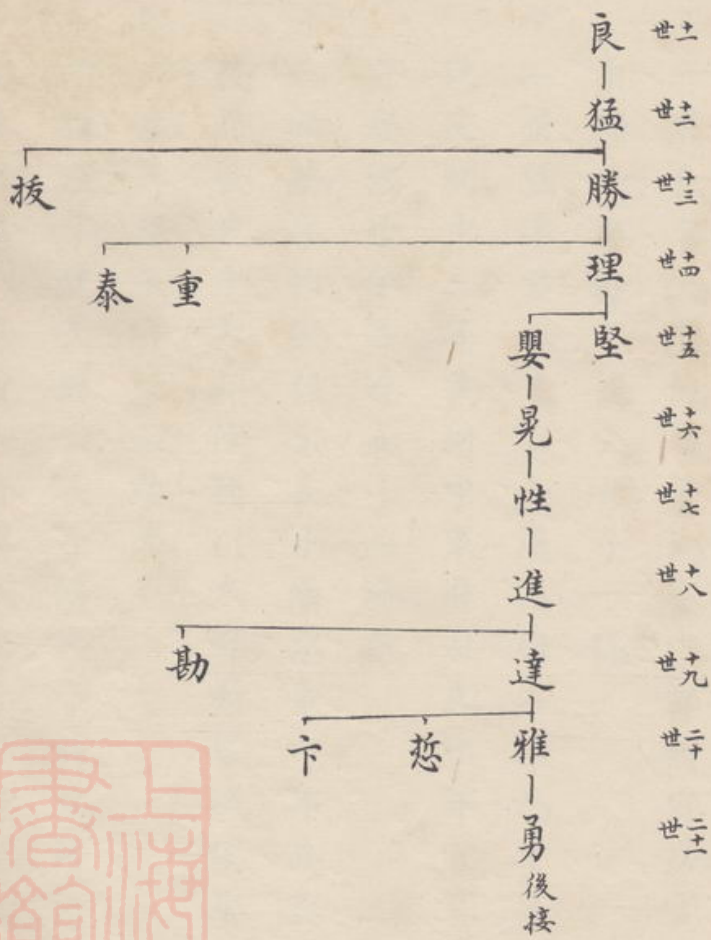 十一世 良
十二世 猛
十三世 勝 拔
十四世 理 重 泰
十五世 堅 嬰
十六世 晃
十七世 性
十八世 進
十九世 達 勘
二十世 雅 悊 卞
二十一世 勇 後接
上海
書館